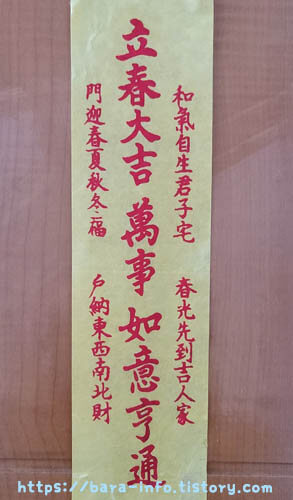 和氣自生君子宅
春光先到吉人家
立春大吉 萬事如意亨通
門迎春夏秋冬福
戶納東西南北財
https://bara-info.tistory.com